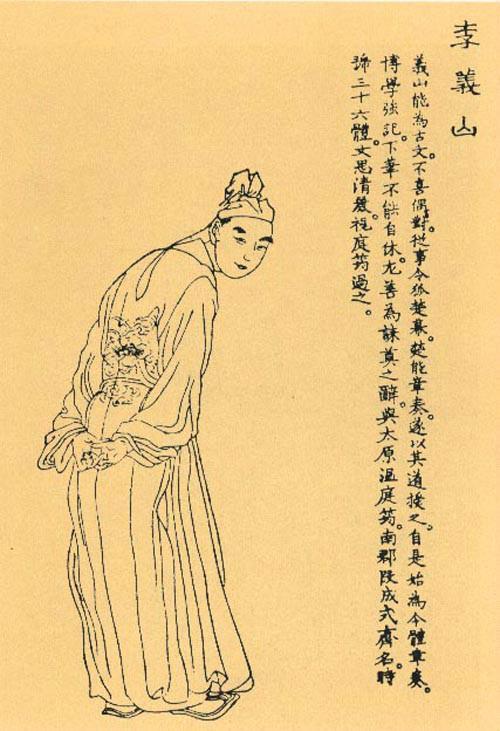 李義山
義山能為古文。不喜偶對。從事令狐楚幕。楚能章奏。遂以其道授之。自是始為今體章奏。
博學強記。下筆不能自休。尤善為誄奠之辭。與太原溫庭筠。南郡段成式齊名。時
號三十六體。文思清。視庭筠過之。